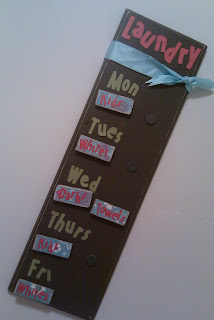 Laundry
Mon
Kids
Tues
Whites
Wed
Darks Towels
Thurs
Kids
Fri
Whites